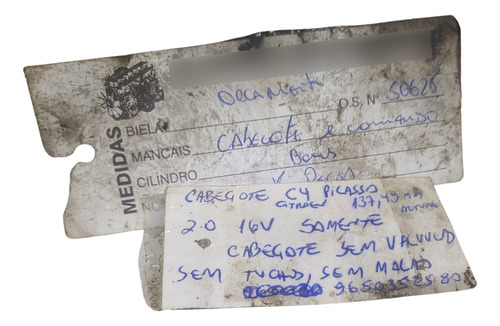 Orcamento
O.S. Nº 50626
MEDIDAS
BIELA
MANCAIS Cabeçote e comando
CILINDRO Bons
CABEGOTE C4 PICASSO
CITROEN 137,49 MM
ALTURA
2.0 16V SOMENTE
CABEGOTE SEM VALVULA
SEM TUCHO, SEM MOLAS
9650352580